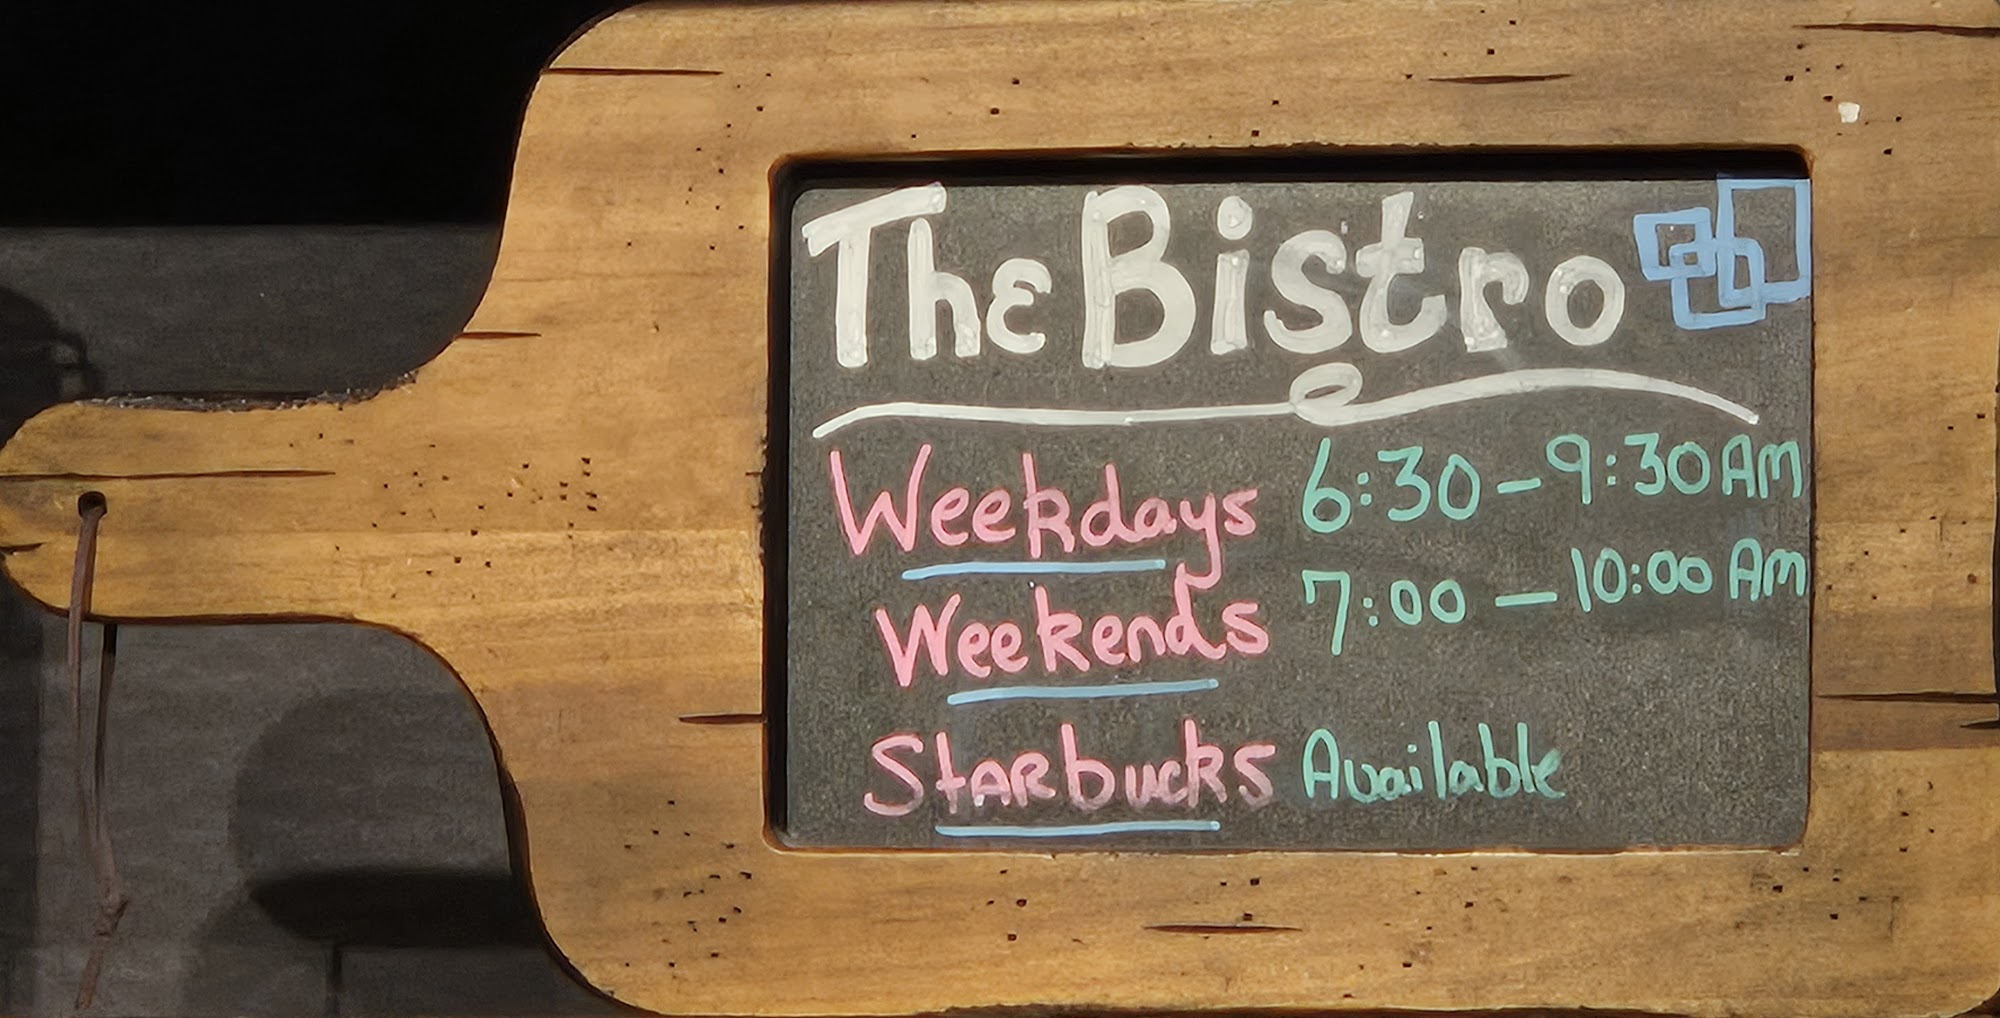 The Bistro
Weekdays 6:30 - 9:30 Am
Weekends 7:00 - 10:00 Am
Starbucks Available